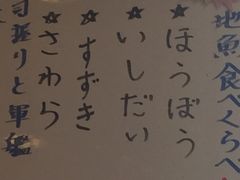 地魚食べくらべ
★ほうぼう
★いしだい
★すずき
★さわら
司握りと軍艦